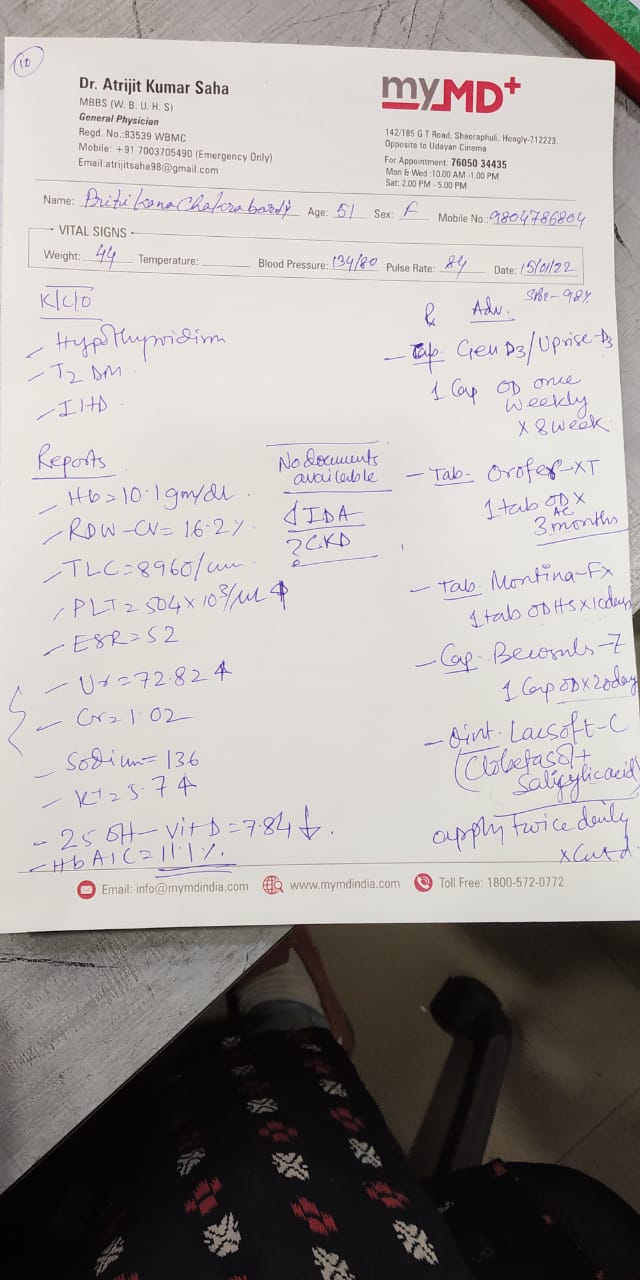 10
Dr. Atrijit Kumar Saha
MBBS (W. B. U. H. S)
General Physician
Regd. No.:83539 WBMC
Mobile: +91 7003705490 (Emergency Only)
Email:atrijitsaha98@gmail.com
myMD+
142/185 G T Road, Sheoraphuli, Hoogly-712223.
Opposite to Udayan Cinema
For Appointment: 76050 34435
Mon & Wed :10.00 AM -1.00 PM
Sat: 2.00 PM - 5.00 PM
Name: Pritikana Chakraborty Age: 51 Sex: F Mobile No.: 9804786804
VITAL SIGNS
Weight: 44 Temperature: Blood Pressure: 134/80 Pulse Rate: 84 Date: 15/01/22
SPO2-98%
K/C/O
- Hypothyroidism
- T2 DM
- IHD
Reports
- Hb=10.1gm/dl.
- RDW-CV=16.2%.
- TLC=8960/cum.
- PLT=504x10³/µl ↑
- ESR=52
- Ur=72.82↑
- Cr=1.02
- Sodium=136
- K+=5.7↑
- 25 OH-VitD=7.84↓.
- HbA1C=11.1%.
No documents
available
IDA
?CKD
Adv.
Cap. Gen D3/Uprise-D3
1 Cap OD once
weekly
x 8 week.
- Tab. Orofer-XT
1 tab OD x
AC
3 months
- Tab. Montina-Fx
1 tab OD HS x 10days
- Cap. Becosules-Z
1 Cap OD x 20day
- Oint. Lacsoft-C
(Clobetasol+
Saligylicacid)
apply twice daily
x Cutd.
Email: info@mymdindia.com www.mymdindia.com Toll Free: 1800-572-0772